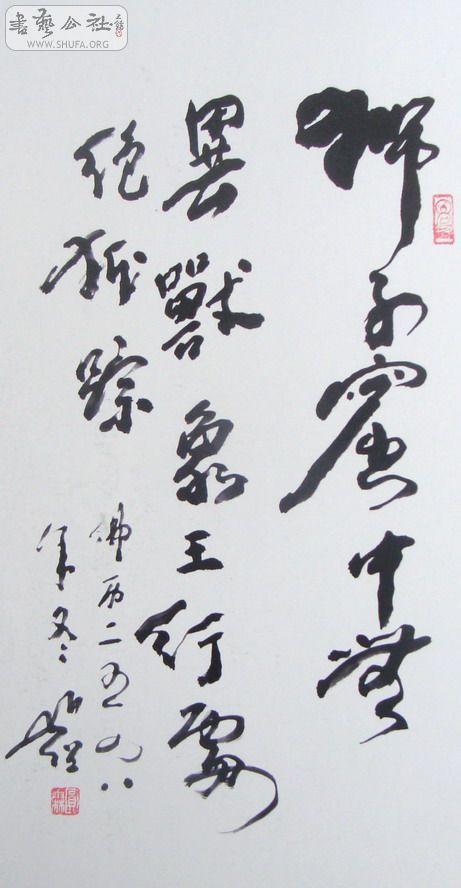 書藝公社
WWW.SHUFA.ORG
獅子窟中無
異獸象王行處
絕狐踪
佛历二五四八
年冬